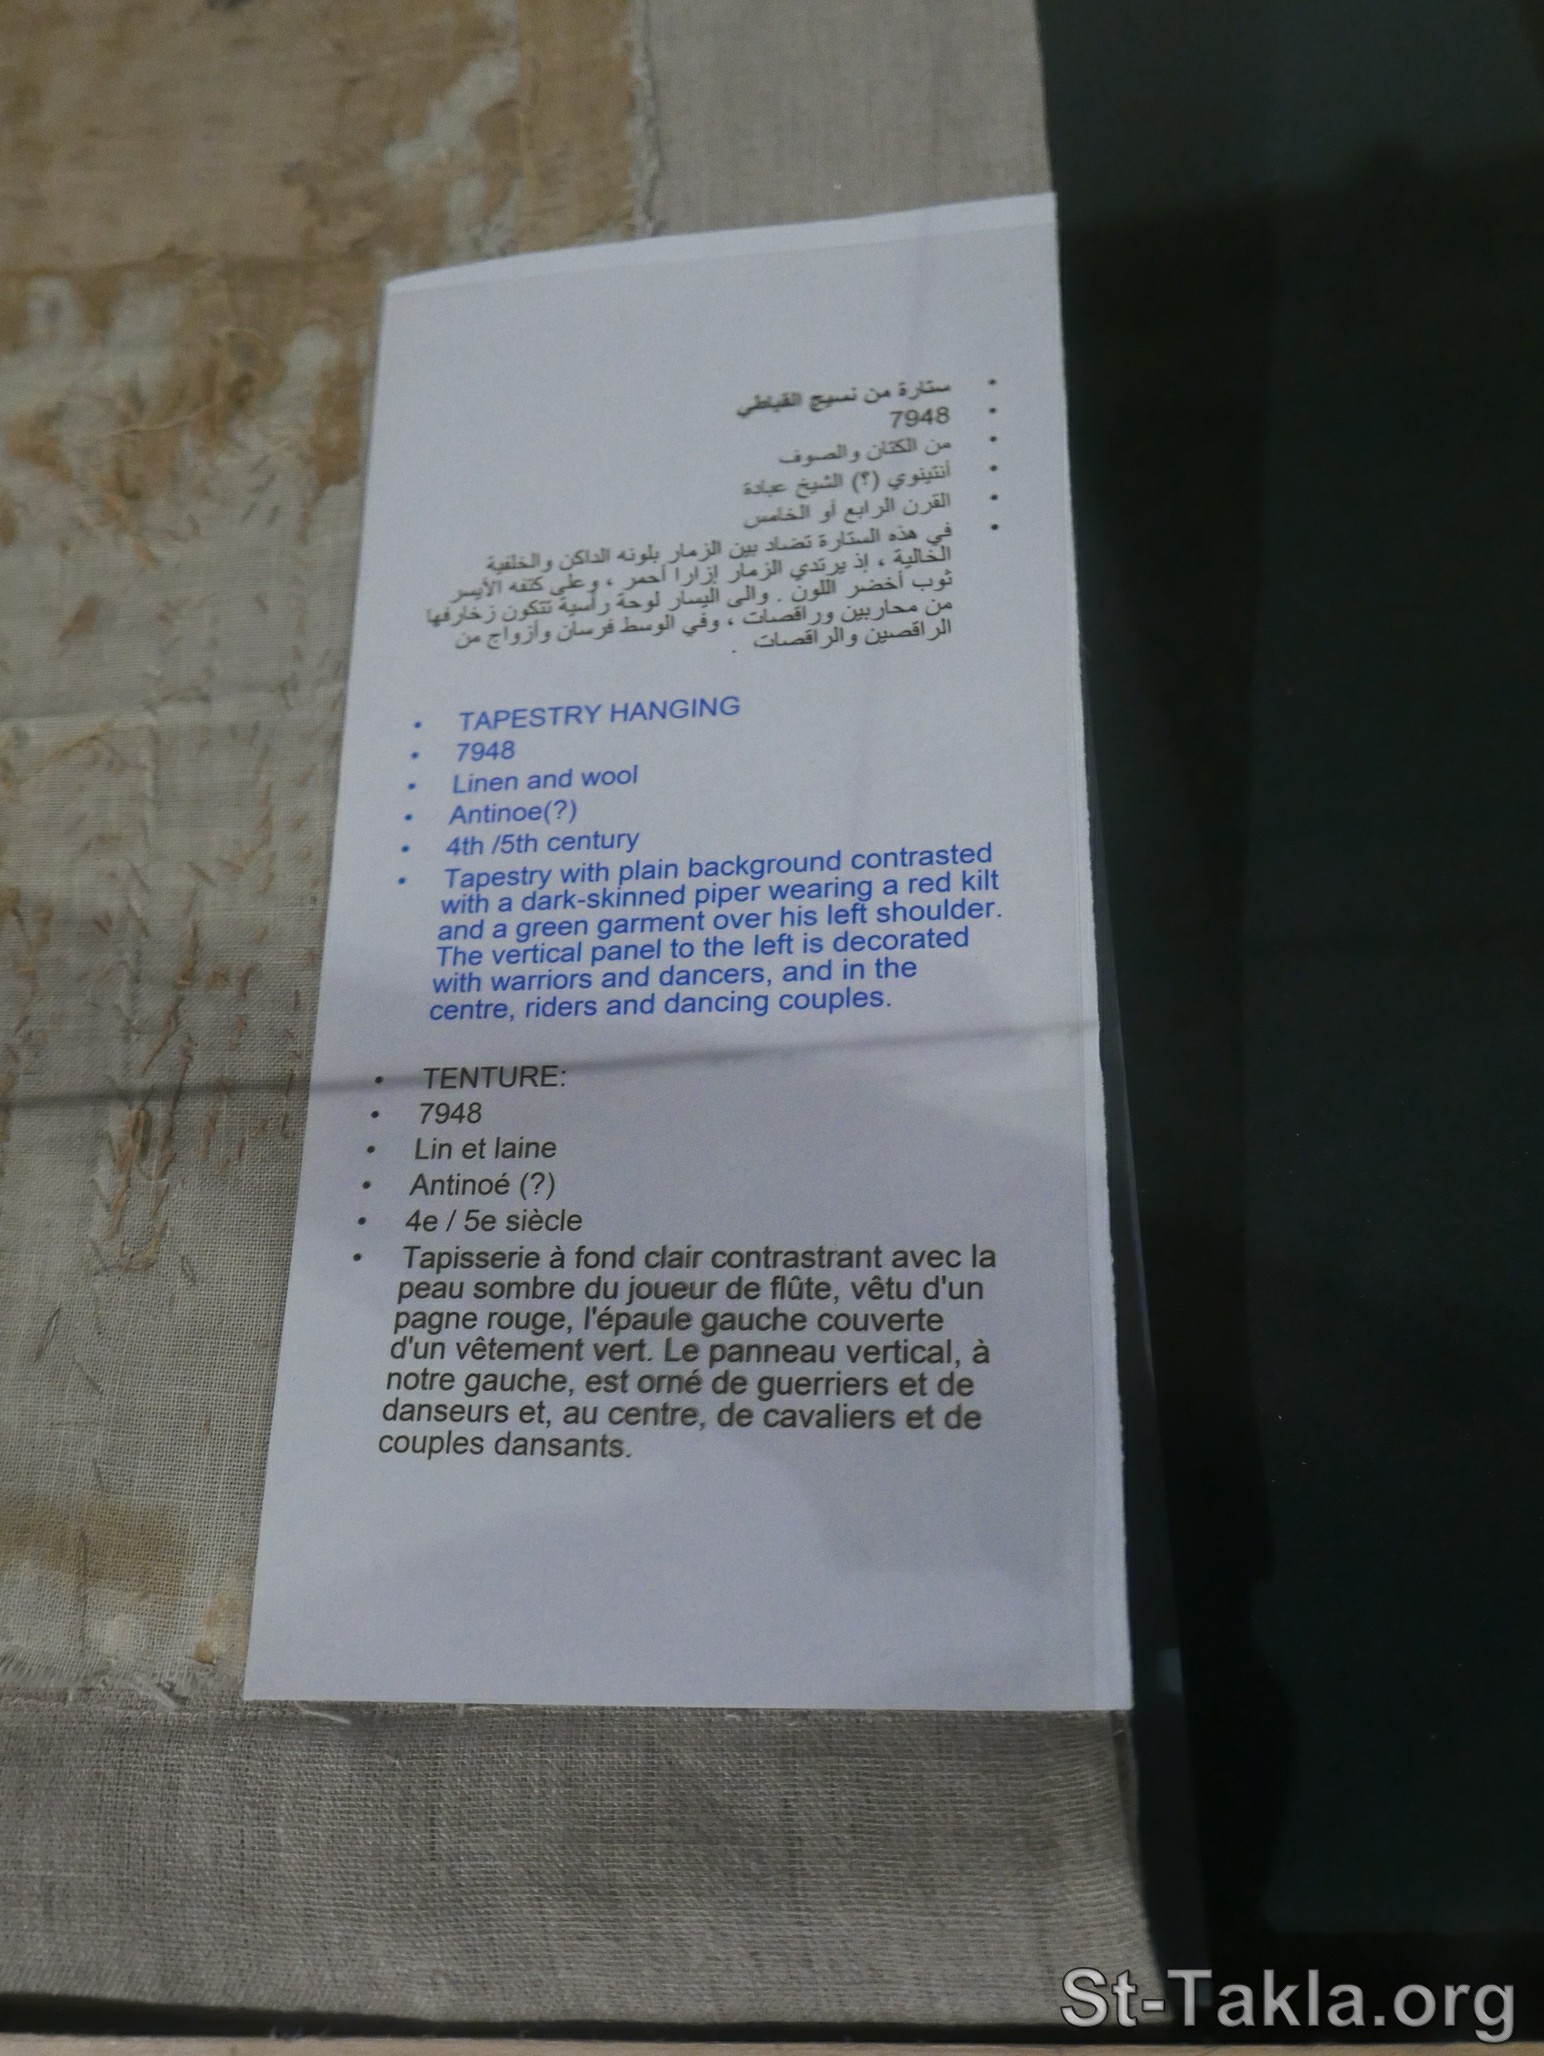 • ستارة من نسيج القباطي
• 7948
• من الكتان والصوف
• أنتينوي (؟) الشيخ عبادة
• القرن الرابع أو الخامس
• في هذه الستارة تضاد بين الزمار بلونه الداكن والخلفية
الخالية ، إذ يرتدي الزمار إزارا أحمر ، وعلى كتفه الأيسر
ثوب أخضر اللون . والى اليسار لوحة رأسية تتكون زخارفها
من محاربين وراقصات ، وفي الوسط فرسان وأزواج من
الراقصين والراقصات .
• TAPESTRY HANGING
• 7948
• Linen and wool
• Antinoe(?)
• 4th /5th century
• Tapestry with plain background contrasted
with a dark-skinned piper wearing a red kilt
and a green garment over his left shoulder.
The vertical panel to the left is decorated
with warriors and dancers, and in the
centre, riders and dancing couples.
• TENTURE:
• 7948
• Lin et laine
• Antinoé (?)
• 4e / 5e siècle
• Tapisserie à fond clair contrastrant avec la
peau sombre du joueur de flûte, vêtu d'un
pagne rouge, l'épaule gauche couverte
d'un vêtement vert. Le panneau vertical, à
notre gauche, est orné de guerriers et de
danseurs et, au centre, de cavaliers et de
couples dansants.
St-Takla.org